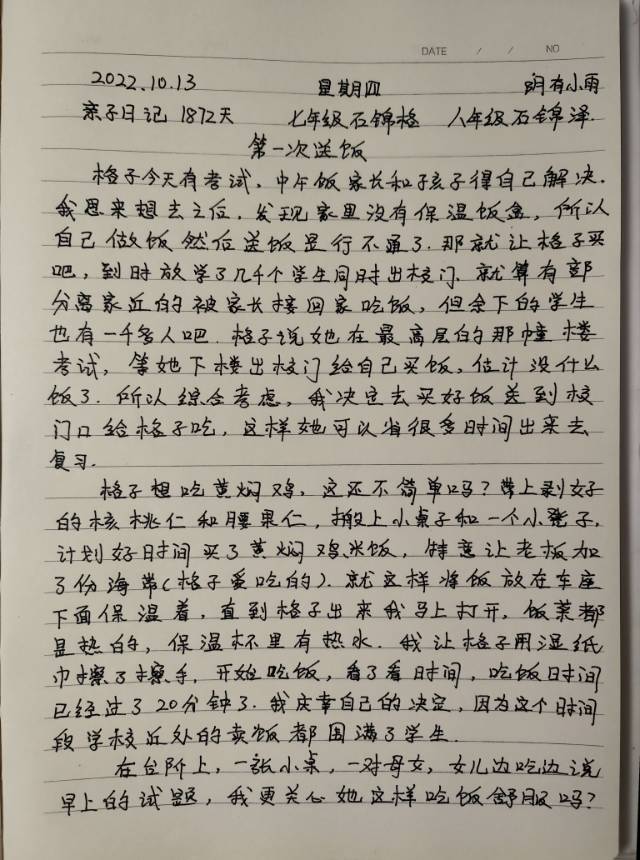 DATE / / NO
2022.10.13 星期四 阴有小雨
亲子日记 1872天 七年级石锦格 八年级石锦泽.
第一次送饭
格子今天有考试，中午饭家长和孩子得自己解决.
我思来想去之位，发现家里没有保温饭盒，所以
自己做饭然后送饭是行不通了.那就让格子买
吧，到时放学了几千个学生同时出校门，就算有部
分离家近的被家长接回家吃饭，但余下的学生
也有一千多人吧.格子说她在最高层的那幢楼
考试，等她下楼出校门给自己买饭，估计没什么
饭了.所以综合考虑，我决定去买好饭送到校
门口给格子吃，这样她可以省很多时间出来去
复习.
格子想吃黄焖鸡，这还不简单吗？带上剥好
的核桃仁和腰果仁，搬上小桌子和一个小凳子，
计划好时间买了黄焖鸡米饭，特意让老板加
了份海带(格子爱吃的).就这样将饭放在车座
下面保温着，直到格子出来我马上打开，饭菜都
是热的，保温杯里有热水.我让格子用湿纸
巾擦了擦手，开始吃饭，看了看时间，吃饭时间
已经过了20分钟了.我庆幸自己的决定，因为这个时间
段学校近处的卖饭都围满了学生.
在台阶上，一张小桌，一对母女，女儿边吃边说
早上的试题，我更关心她这样吃饭舒服吗？